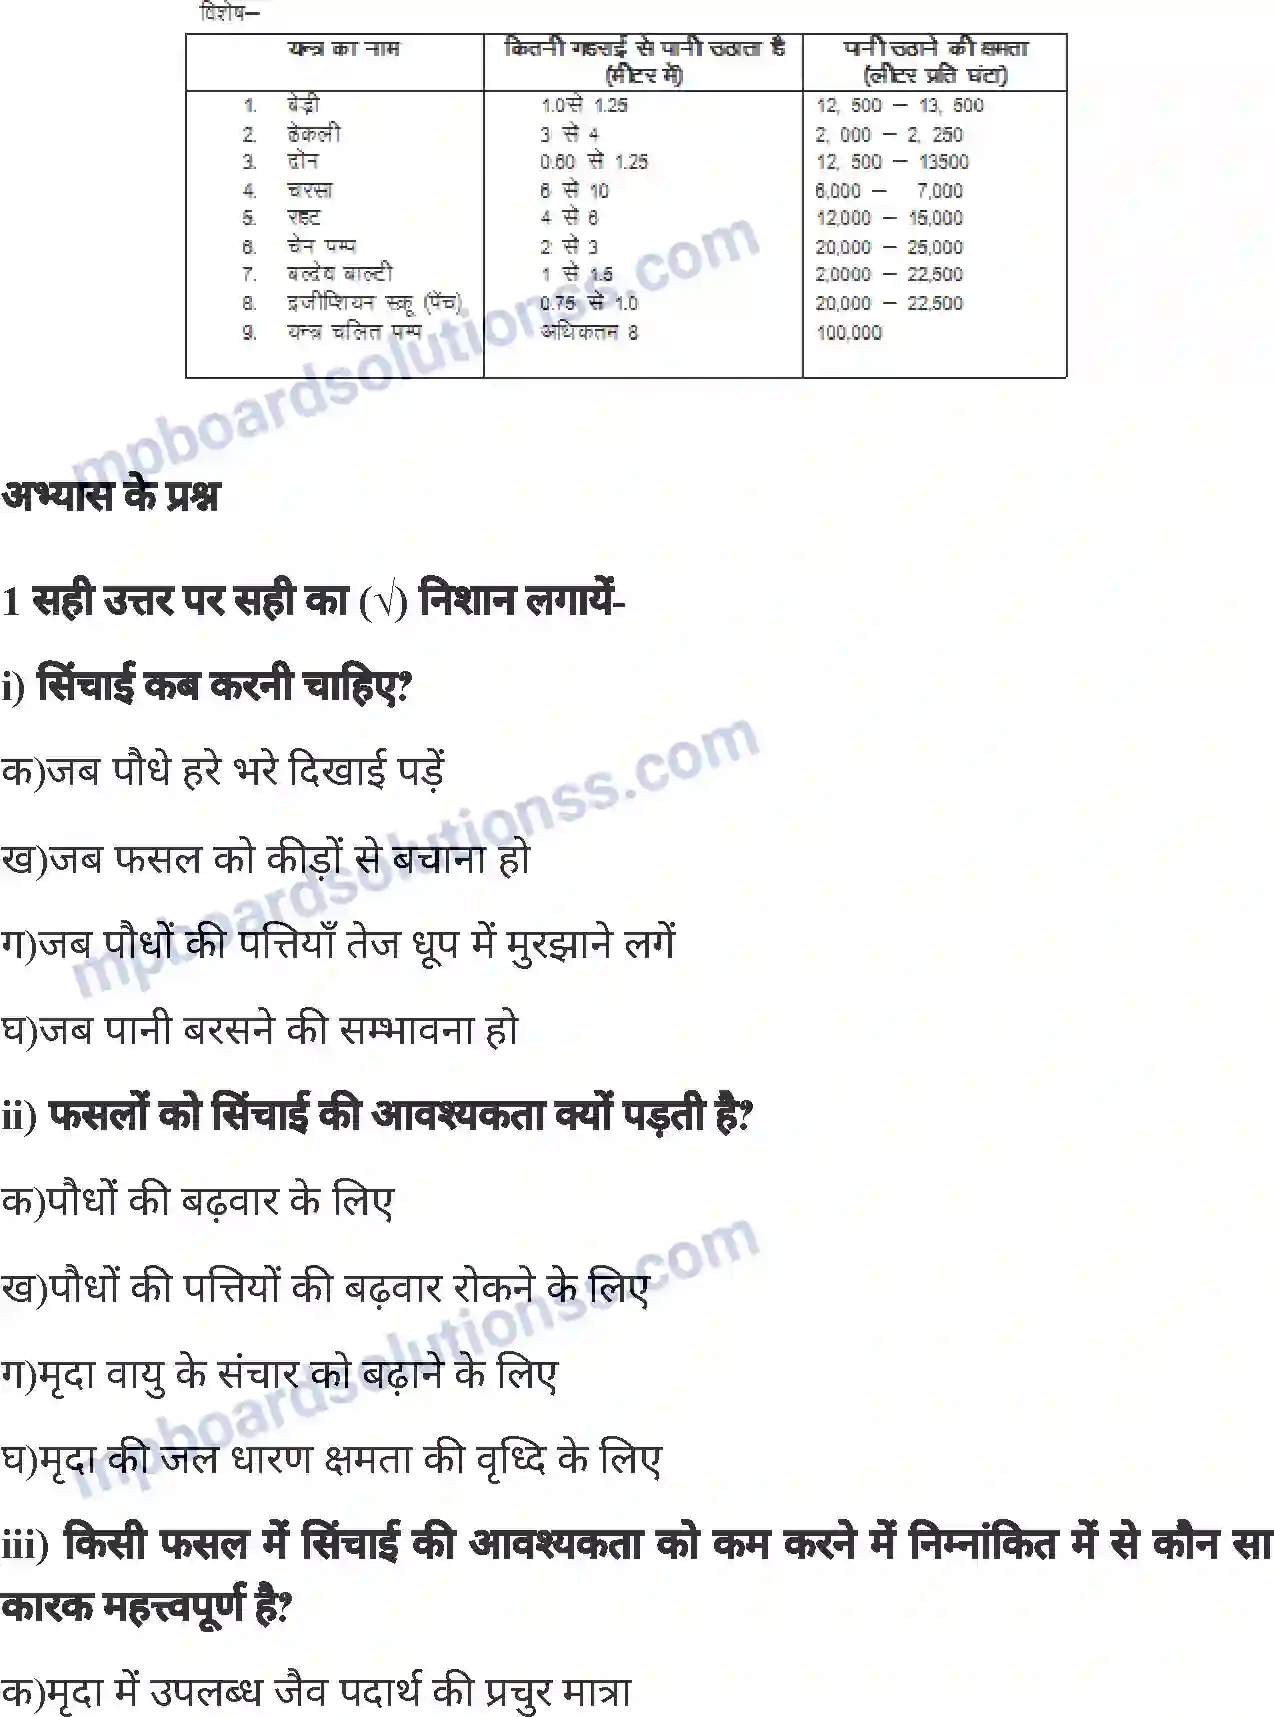 विशेष–
यन्त्र का नाम कितनी गहराई से पानी उठाता है (मीटर में) पानी उठाने की क्षमता (लीटर प्रति घंटा)
1. बेड़ी 1.0से 1.25 12, 500 – 13, 500
2. ढेकली 3 से 4 2, 000 – 2, 250
3. दोन 0.60 से 1.25 12, 500 – 13500
4. चारसा 6 से 10 6,000 – 7,000
5. रहट 4 से 6 12,000 – 15,000
6. चेन पम्प 2 से 3 20,000 – 25,000
7. बल्देव बाल्टी 1 से 1.5 2,0000 – 22,500
8. इजीप्शियन स्क्रू (पेंच) 0.75 से 1.0 20,000 – 22,500
9. यन्त्र चलित पम्प अधिकतन 8 100,000
अभ्यास के प्रश्न
1 सही उत्तर पर सही का (√) निशान लगायें-
i) सिंचाई कब करनी चाहिए?
क)जब पौधे हरे भरे दिखाई पड़ें
ख)जब फसल को कीड़ों से बचाना हो
ग)जब पौधों की पत्तियाँ तेज धूप में मुरझाने लगें
घ)जब पानी बरसने की सम्भावना हो
ii) फसलों को सिंचाई की आवश्यकता क्यों पड़ती है?
क)पौधों की बढ़वार के लिए
ख)पौधों की पत्तियों की बढ़वार रोकने के लिए
ग)मृदा वायु के संचार को बढ़ाने के लिए
घ)मृदा की जल धारण क्षमता की वृध्दि के लिए
iii) किसी फसल में सिंचाई की आवश्यकता को कम करने में निम्नांकित में से कौन सा
कारक महत्त्वपूर्ण है?
क)मृदा में उपलब्ध जैव पदार्थ की प्रचुर मात्रा
mpboardsolutionss.com
mpboardsolutionss.com
mpboardsolutionss.com